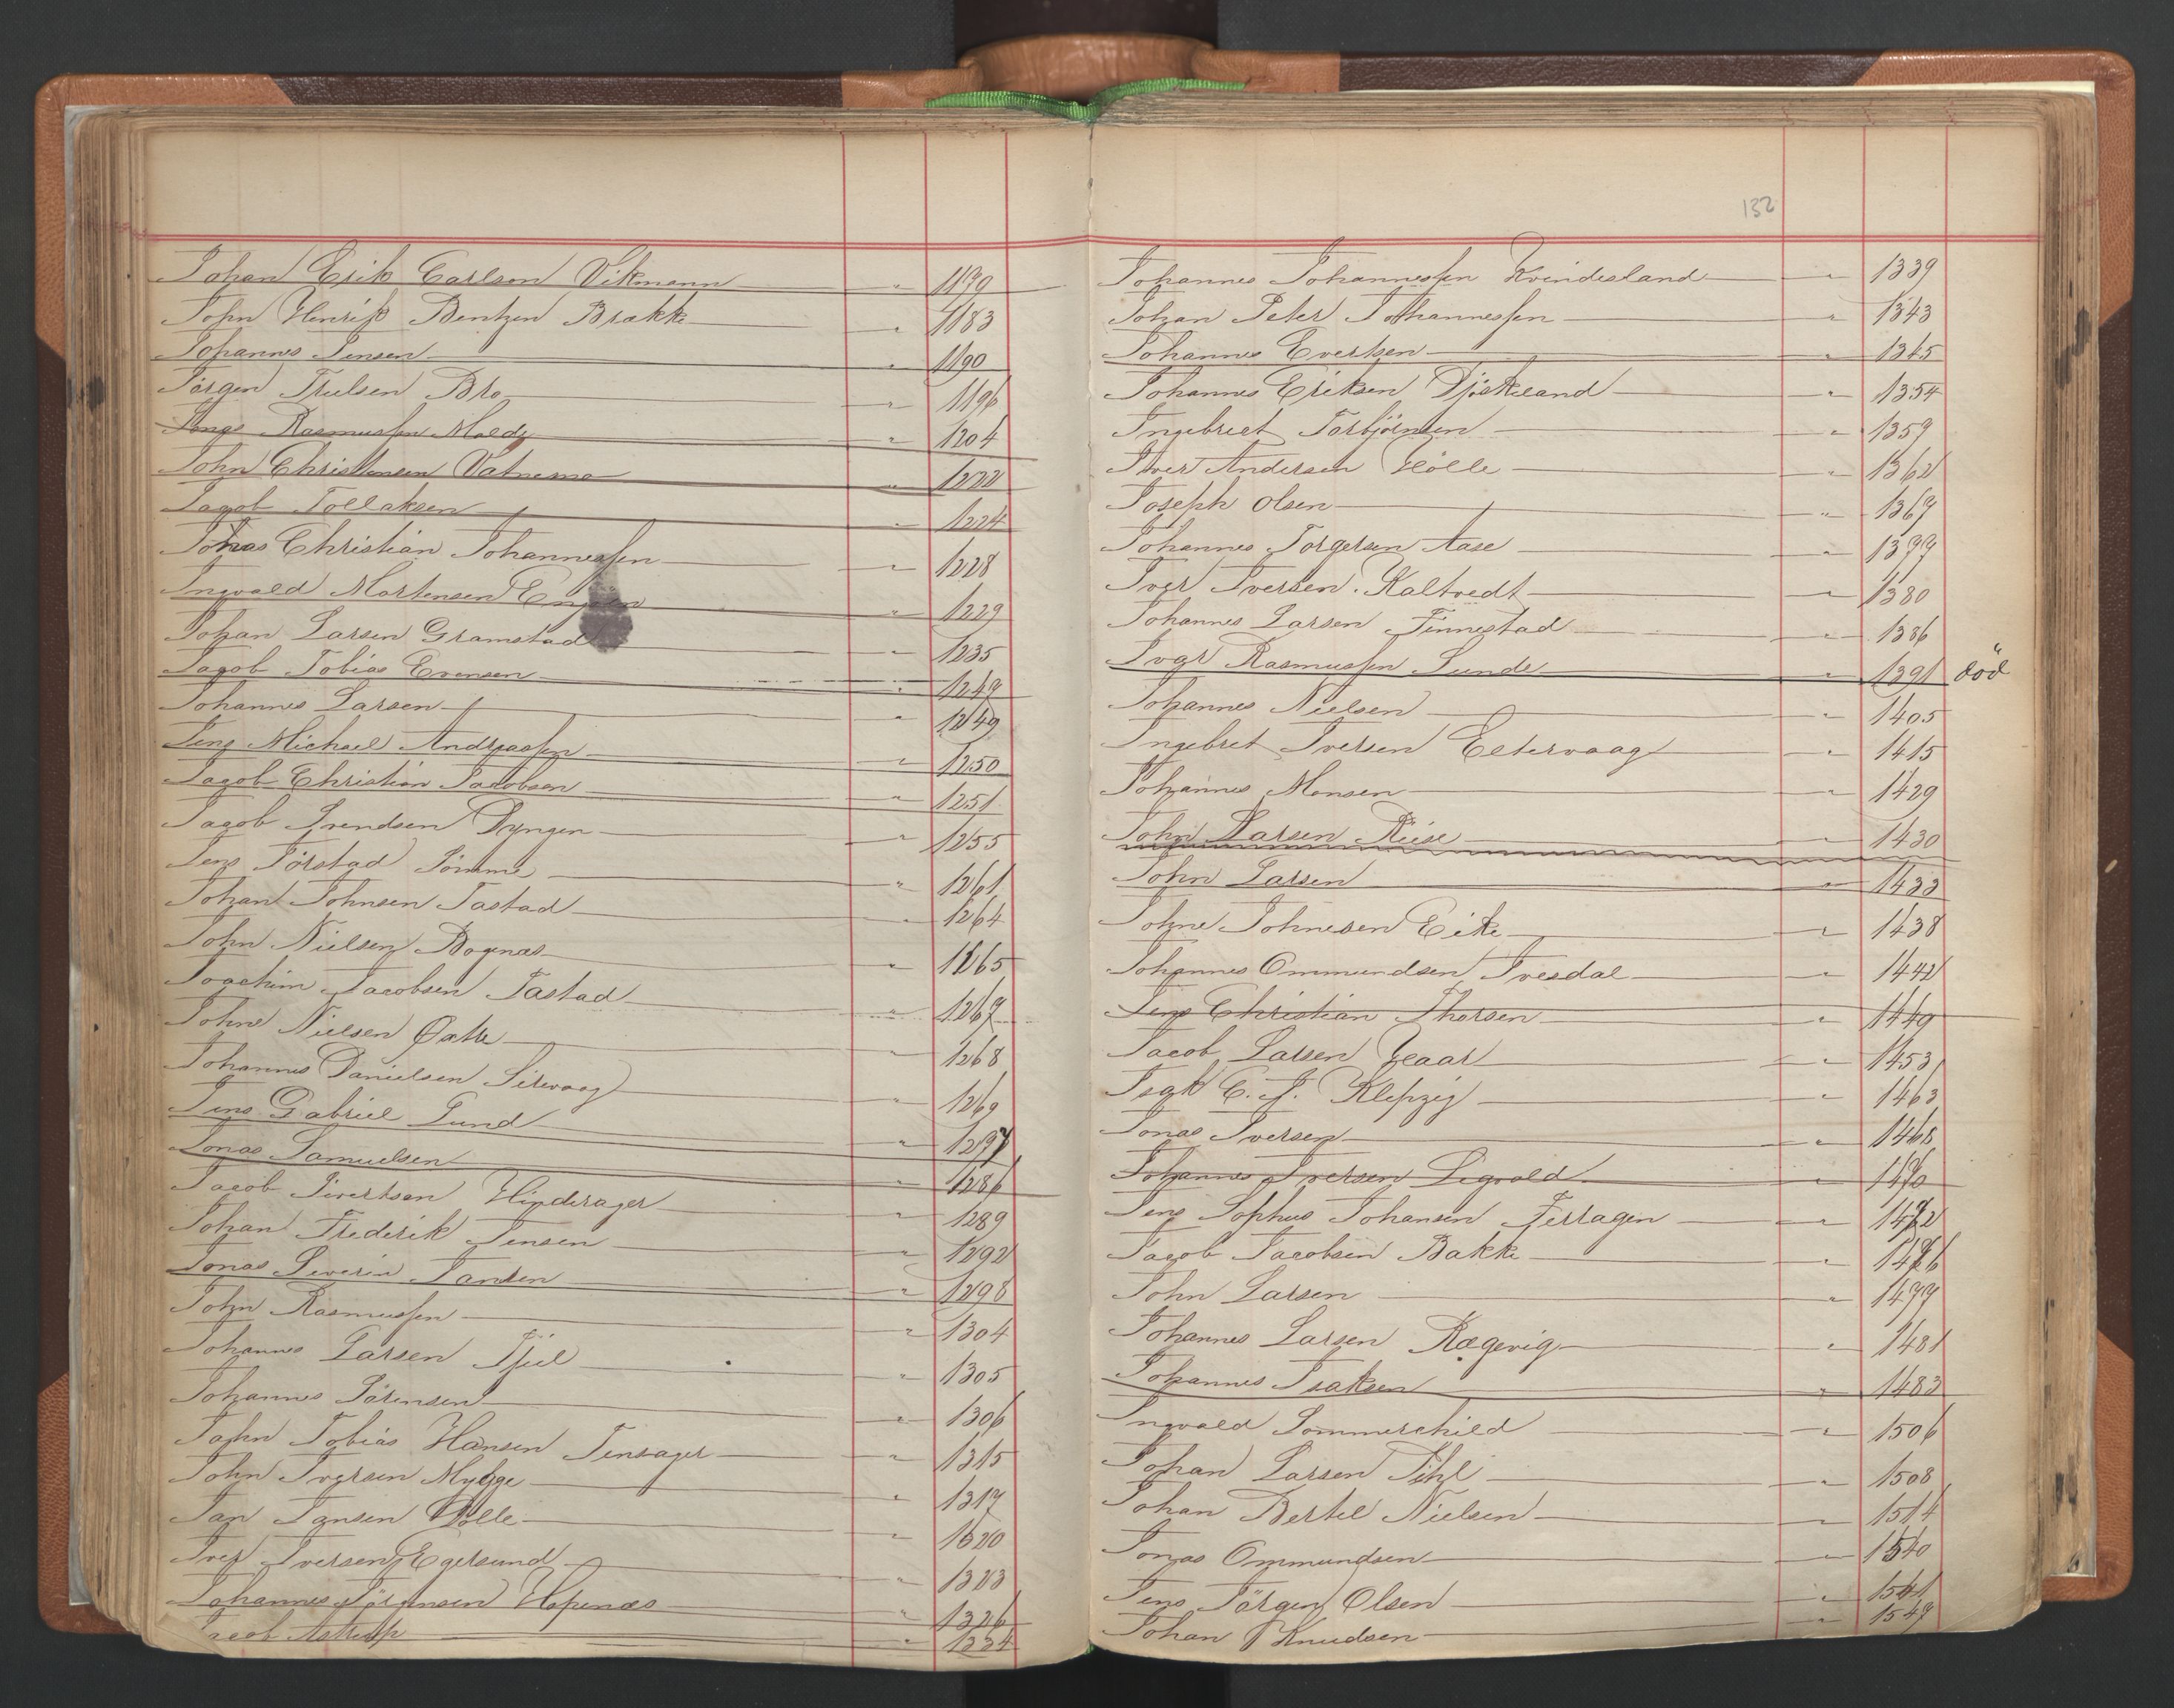 Johan Erik Carlson Vikmann " 1179
John Henrik Bentzen Brække " 1183
Johannes Jensen " 1190
Jørgen Trulsen Bro " 1196
Jonas Rasmussen Molde " 1204
John Christensen Vatnemo " 1222
Jacob Tollaksen " 1224
Jonas Christian Johannessen " 1228
Ingvald Mortensen " 1229
Johan Larsen Gramstad " 1235
Jacob Tobias Evensen " 1247
Johannes Larsen " 1249
Jens Michael Andreassen " 1250
Jacob Christian Jacobsen " 1251
Jacob Svendsen Dyngen " 1255
Jens Törstad Sömme " 1261
Johan Johnsen Tastad " 1264
John Nielsen Bognæs " 1265
Joachim Jacobsen Tastad " 1267
Johne Nielsen " 1268
Johannes Danielsen Sirevaag " 1269
Jens Gabriel Lund " 1277
Jonas Samuelsen " 1286
Jacob Sivertsen Hinderager " 1289
Johan Frederik Jensen " 1292
Jonas Severin Jansen " 1298
John Rasmussen " 1304
Johannes Larsen " 1305
Johannes Sörensen " 1306
John Tobias Hansen " 1315
John Iversen Mykge " 1317
Jan Jansen " 1620
Iver Iversen Egersund " 1323
Johannes Hopenæs " 1326
Jacob Astrup " 1334
132
Johannes Johannessen Kvindesland " 1339
Johan Peter Johannessen " 1343
Johannes Evertsen " 1345
Johannes Eriksen " 1354
Ingebrect Torbjörnsen " 1359
Iver Andersen Hölle " 1362
Joseph Olsen " 1367
Johannes Torgersen Aase " 1377
Iver Iversen Kaltvedt " 1380
Johannes Larsen Finnestad " 1386
Ivar Rasmussen Sunde " 1391 död
Johannes Nielsen " 1405
Ingebret Iversen Eltervaag " 1415
Johannes Monsen " 1429
John Larsen Riise " 1430
John Larsen " 1433
Johne Johnesen Eike " 1438
Johannes Ommundsen Ivesdal " 1442
Jens Christian Thorsen " 1449
Jacob Larsen Haar " 1453
Isak C. J. Klepzig " 1463
Jonas Iversen " 1468
Johannes Iversen Ligvold " 1470
Jens Sophus Johansen Fertagen " 1472
Jacob Jacobsen Bakke " 1476
John Larsen " 1477
Johannes Larsen Rægevig " 1481
Johannes Isaksen " 1483
Ingvald Sommerschild " 1506
Johan Larsen Pihl " 1508
Johan Bertel Nielsen " 1514
Jonas Ommundsen " 1540
Jens Jörgen Olsen " 1541
Johan Knudsen " 1547